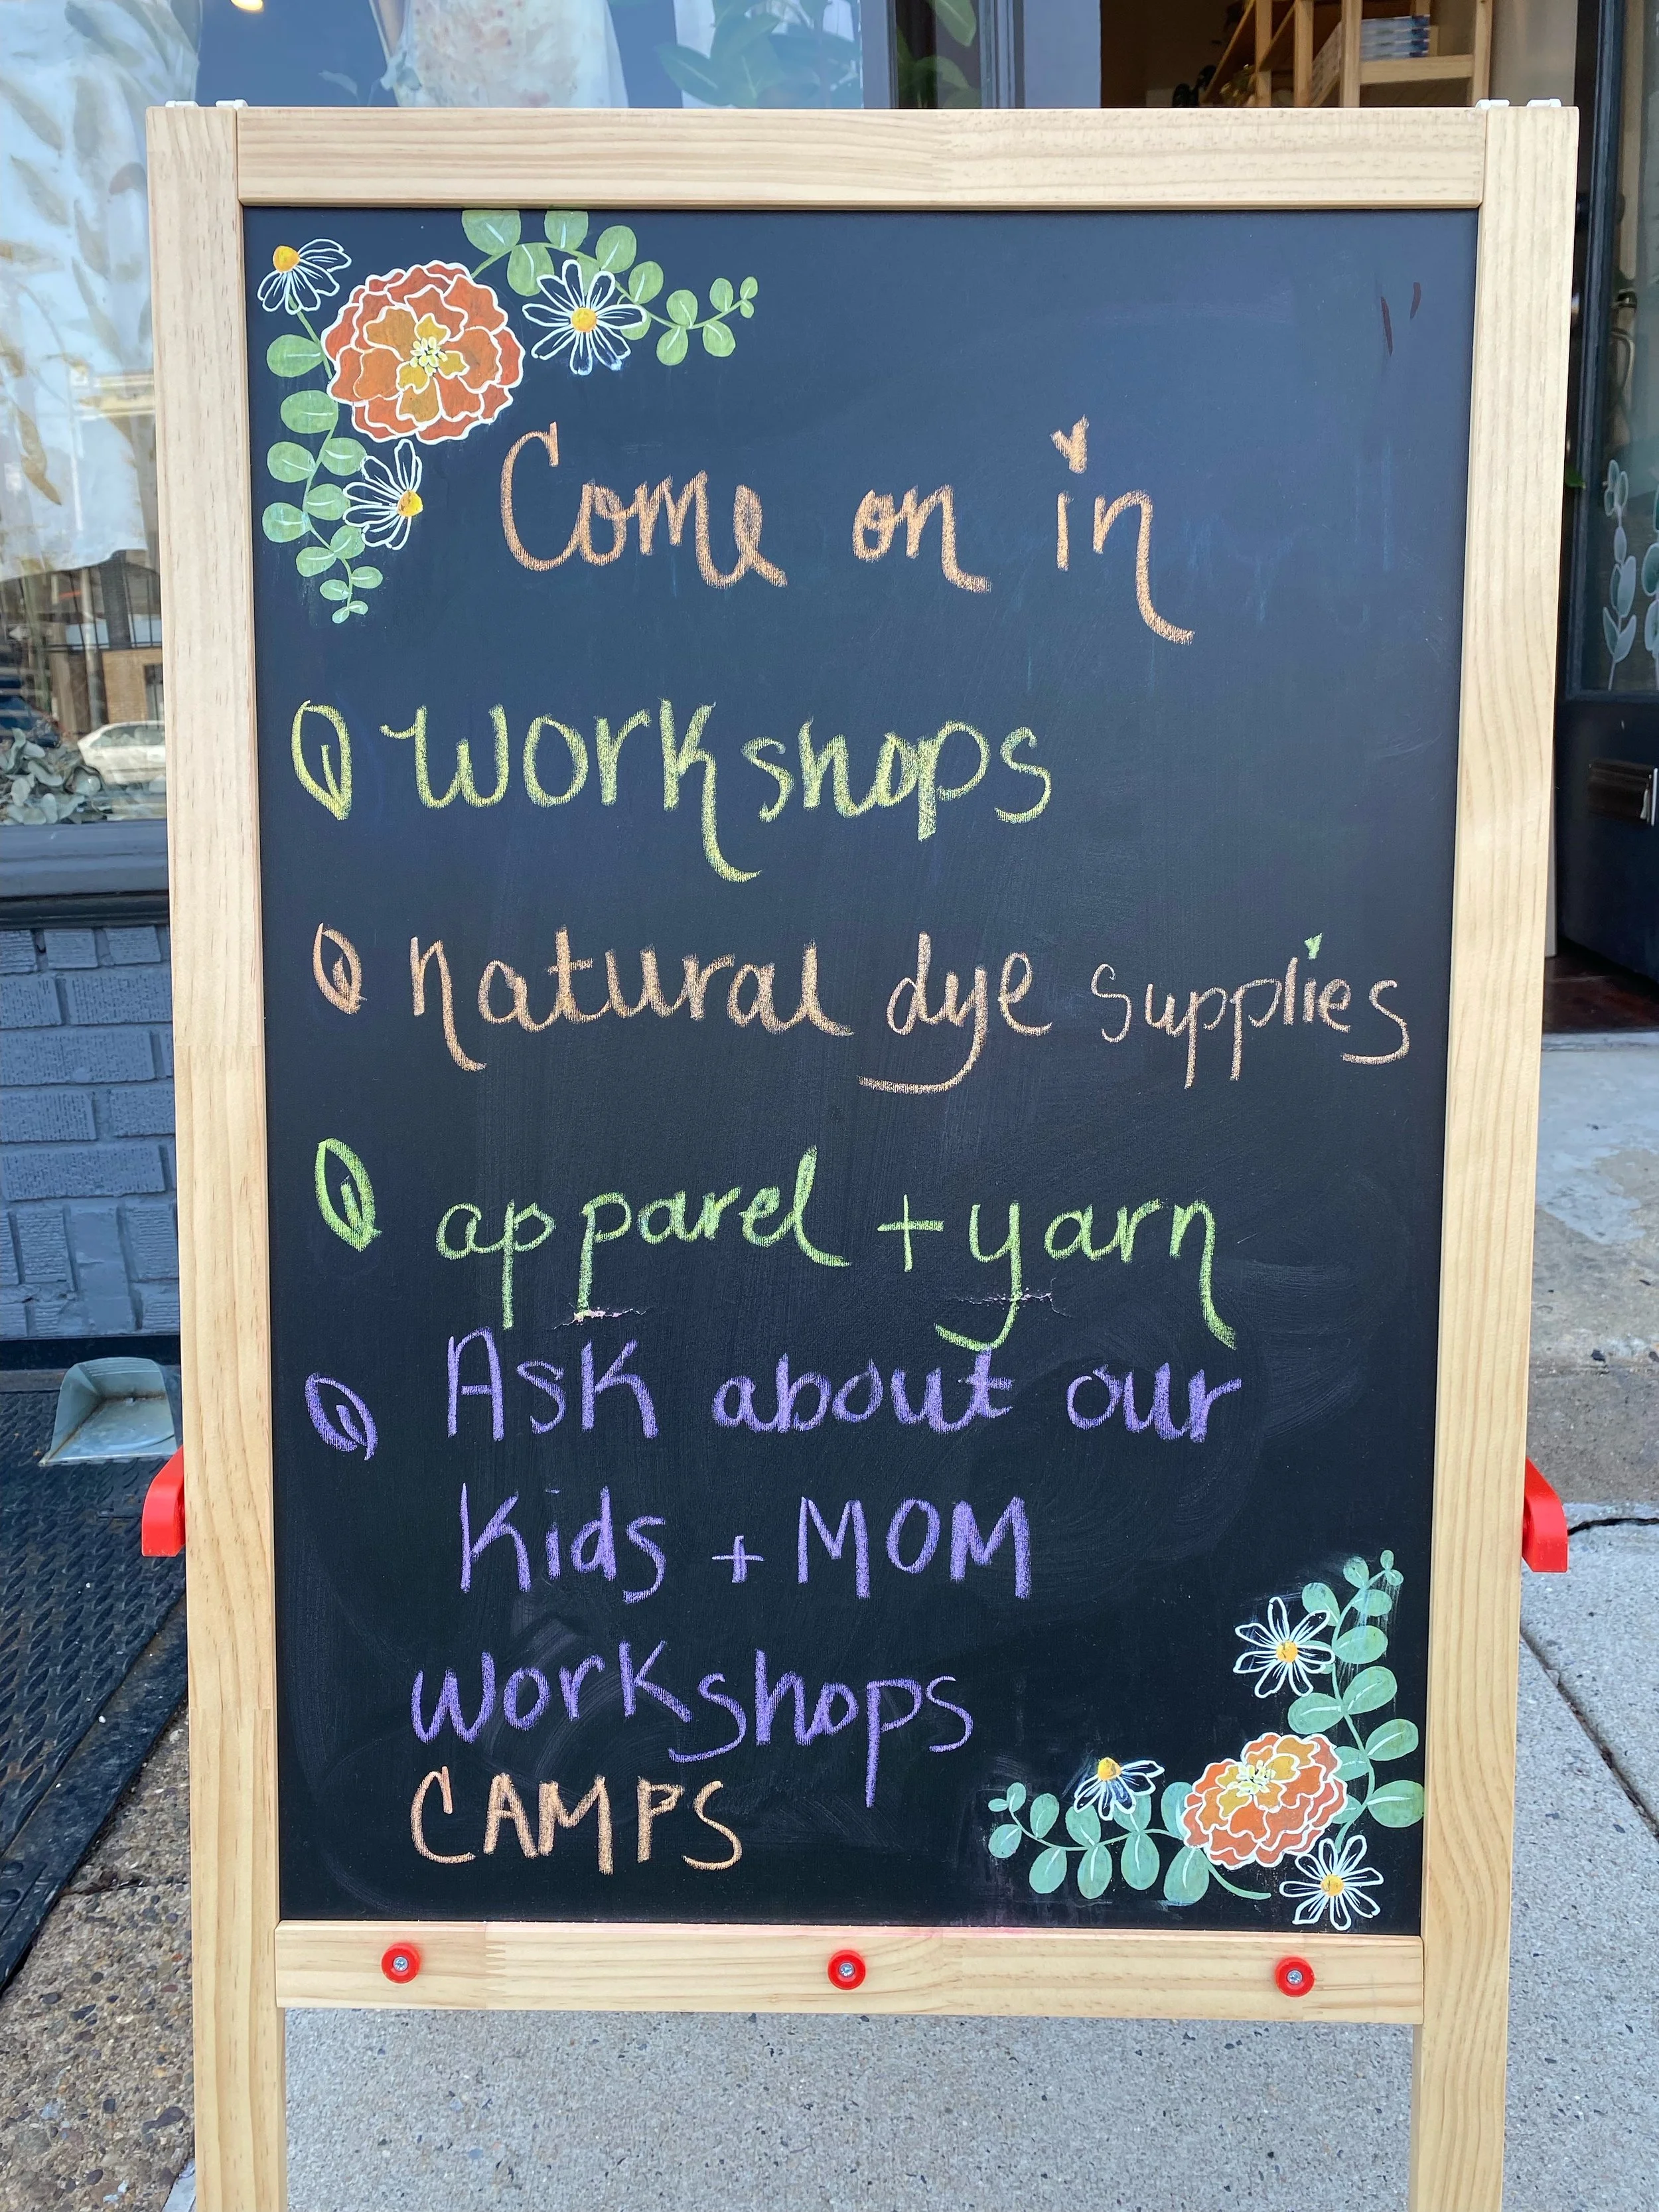 Come on in
Workshops
natural dye supplies
apparel + yarn
Ask about our
Kids + MOM
workshops
CAMPS